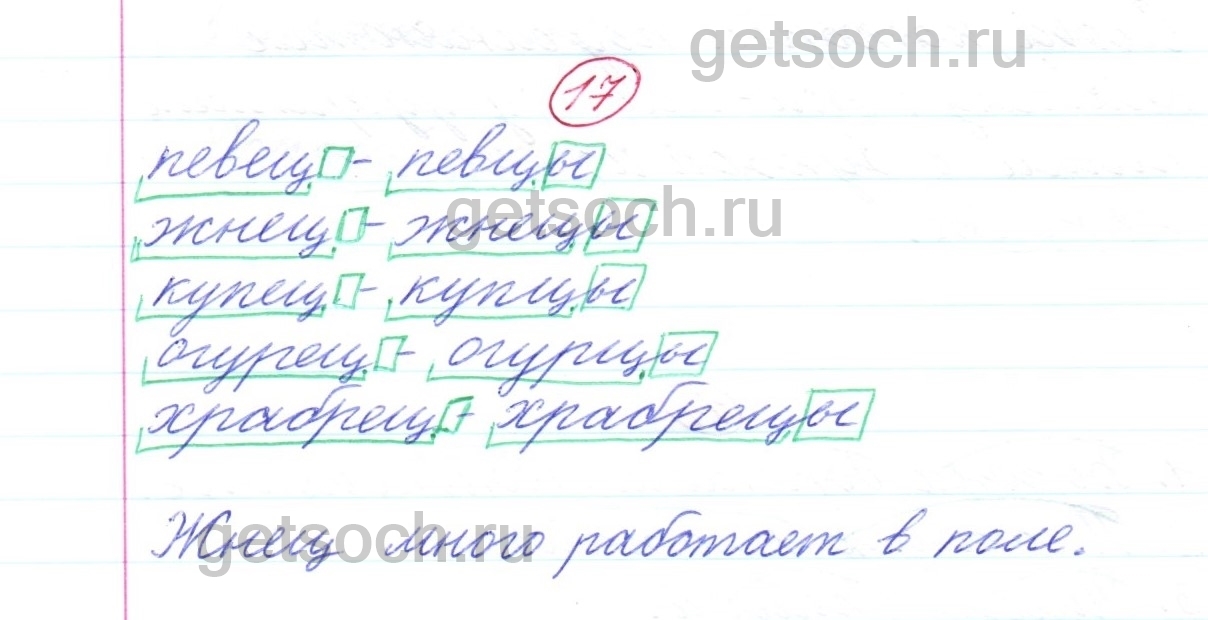 getsoch.ru
17
певец - певцы
getsoch.ru
жнец - жнецы
купец - купцы
огурец - огурцы
храбрец - храбрецы
getsoch.ru
Жнец много работает в поле.